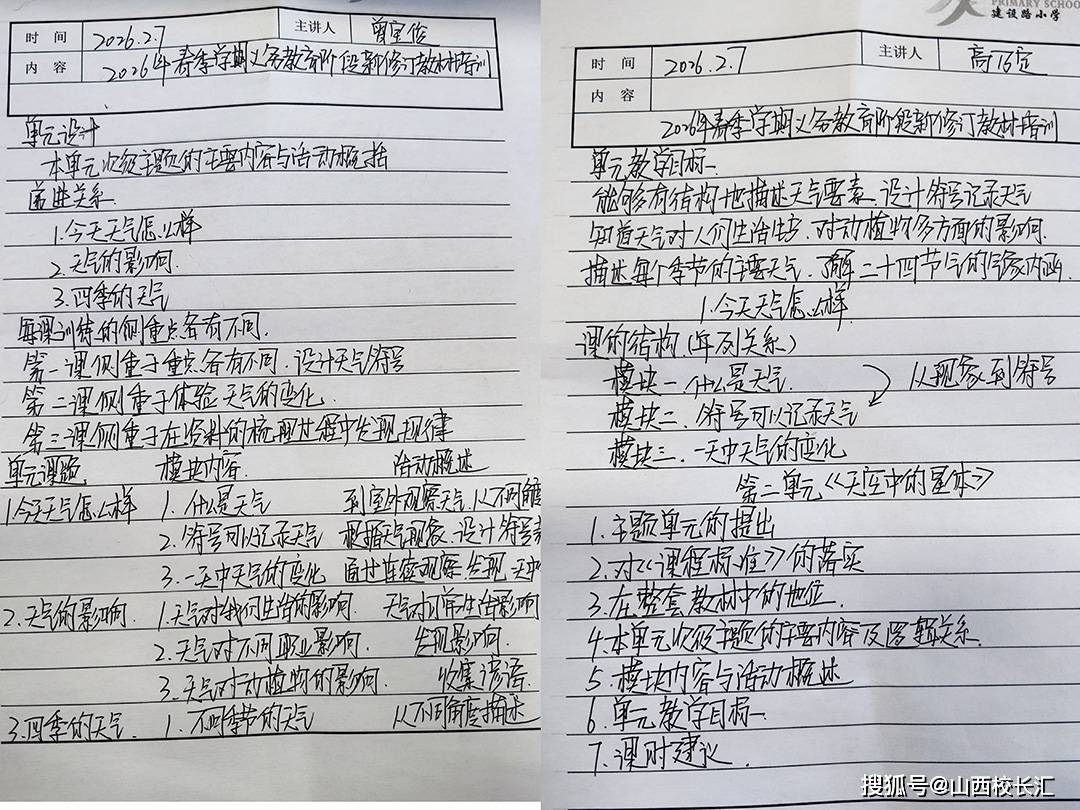 时 间 2026.2.7 主讲人
内 容 2026年春季学期义务教育阶段新修订教材培训
单元设计
本单元次级主题的主要内容与活动概括
递进关系
1.今天天气怎么样
2.天气的影响
3.四季的天气
每课训练的侧重点各有不同.
第一课侧重于重点各有不同.设计天气符号
第二课侧重于体验天气的变化.
第三课侧重于在资料的梳理过程中发现规律
单元课题 模块内容. 活动概述
1.今天天气怎么样 1.什么是天气 到室外观察天气.从不同角度
2.符号可以记录天气 根据天气现象.设计符号
3.一天中天气的变化 通过连续观察.发现一天中
2.天气的影响. 1.天气对我们生活的影响. 天气对日常生活影响
2.天气对不同职业影响. 发现影响.
3.天气对动植物的影响. 收集谚语.
3.四季的天气. 1.不同季节的天气 从不同角度描述
PRIMARY SCHOO
建设路小学
时 间 2026.2.7 主讲人
内 容
2026年春季学期义务教育阶段新修订教材培训
单元教学目标.
能够有结构地描述天气要素.设计符号记录天气
知道天气对人们生活生产.对动植物多方面的影响.
描述每个季节的主要天气.了解二十四节气的气象内涵.
1.今天天气怎么样.
课的结构.(并列关系)
模块一.什么是天气. 从现象到符号
模块二.符号可以记录天气
模块三.一天中天气的变化
第二单元《天空中的星体》
1.主题单元的提出
2.对《课程标准》的落实
3.在整套教材中的地位.
4.本单元次级主题的主要内容及逻辑关系.
5.模块内容与活动概述
6.单元教学目标.
7.课时建议.
搜狐号@山西校长汇